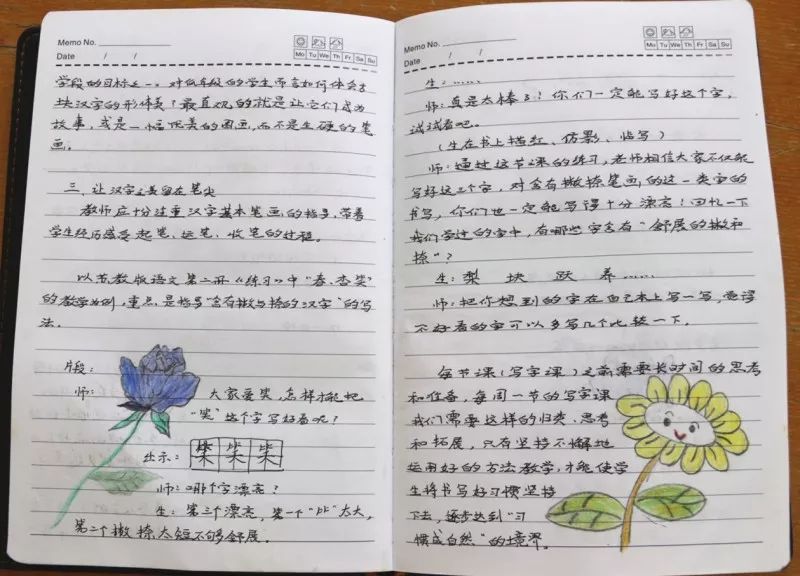 Memo No.
Date / /
Mo Tu We Th Fr Sa Su
学段的目标之一。对低年级的学生而言如何体会方
块汉字的形体美？最直观的就是让它们成为
故事，或是一幅优美的图画，而不是生硬的笔
画。
三、让汉字之美留在笔尖
教师应十分注重汉字基本笔画的指导，带着
学生经历感受起笔、运笔、收笔的过程。
以苏教版语文第二册《练习》中“春、杏、柴”
的教学为例，重点是指导“含有撇与捺的汉字”的写
法。
片段：
师：
大家爱柴，怎样才能把
“柴”这个字写好看呢？
出示：
柴 柴 柴
师：哪个字漂亮？
生：第三个漂亮，第一个“此”太大，
第二个撇捺太短不够舒展。
Memo No.
Date / /
Mo Tu We Th Fr Sa Su
生：……
师：真是太棒了！你们一定能写好这个字，
试试看吧。
（生在书上描红、仿影、临写）
师：通过这节课的练习，老师相信大家不仅能
写好这三个字，对含有撇捺笔画的这一类字的
书写，你们也一定能写得十分漂亮！回忆一下
我们学过的字中，有哪些字含有“舒展的撇和
捺”？
生：梨 块 跃 养……
师：把你想到的字在自己本上写一写，觉得
不好看的字可以多写几个比较一下。
每节课（写字课）之前需要长时间的思考
和准备，每周一节的写字课
我们需要这样的归类、思考
和拓展，只有坚持不懈地
运用好的方法教学，才能使学
生将书写好习惯坚持
下去，逐步达到“习
惯成自然”的境界。